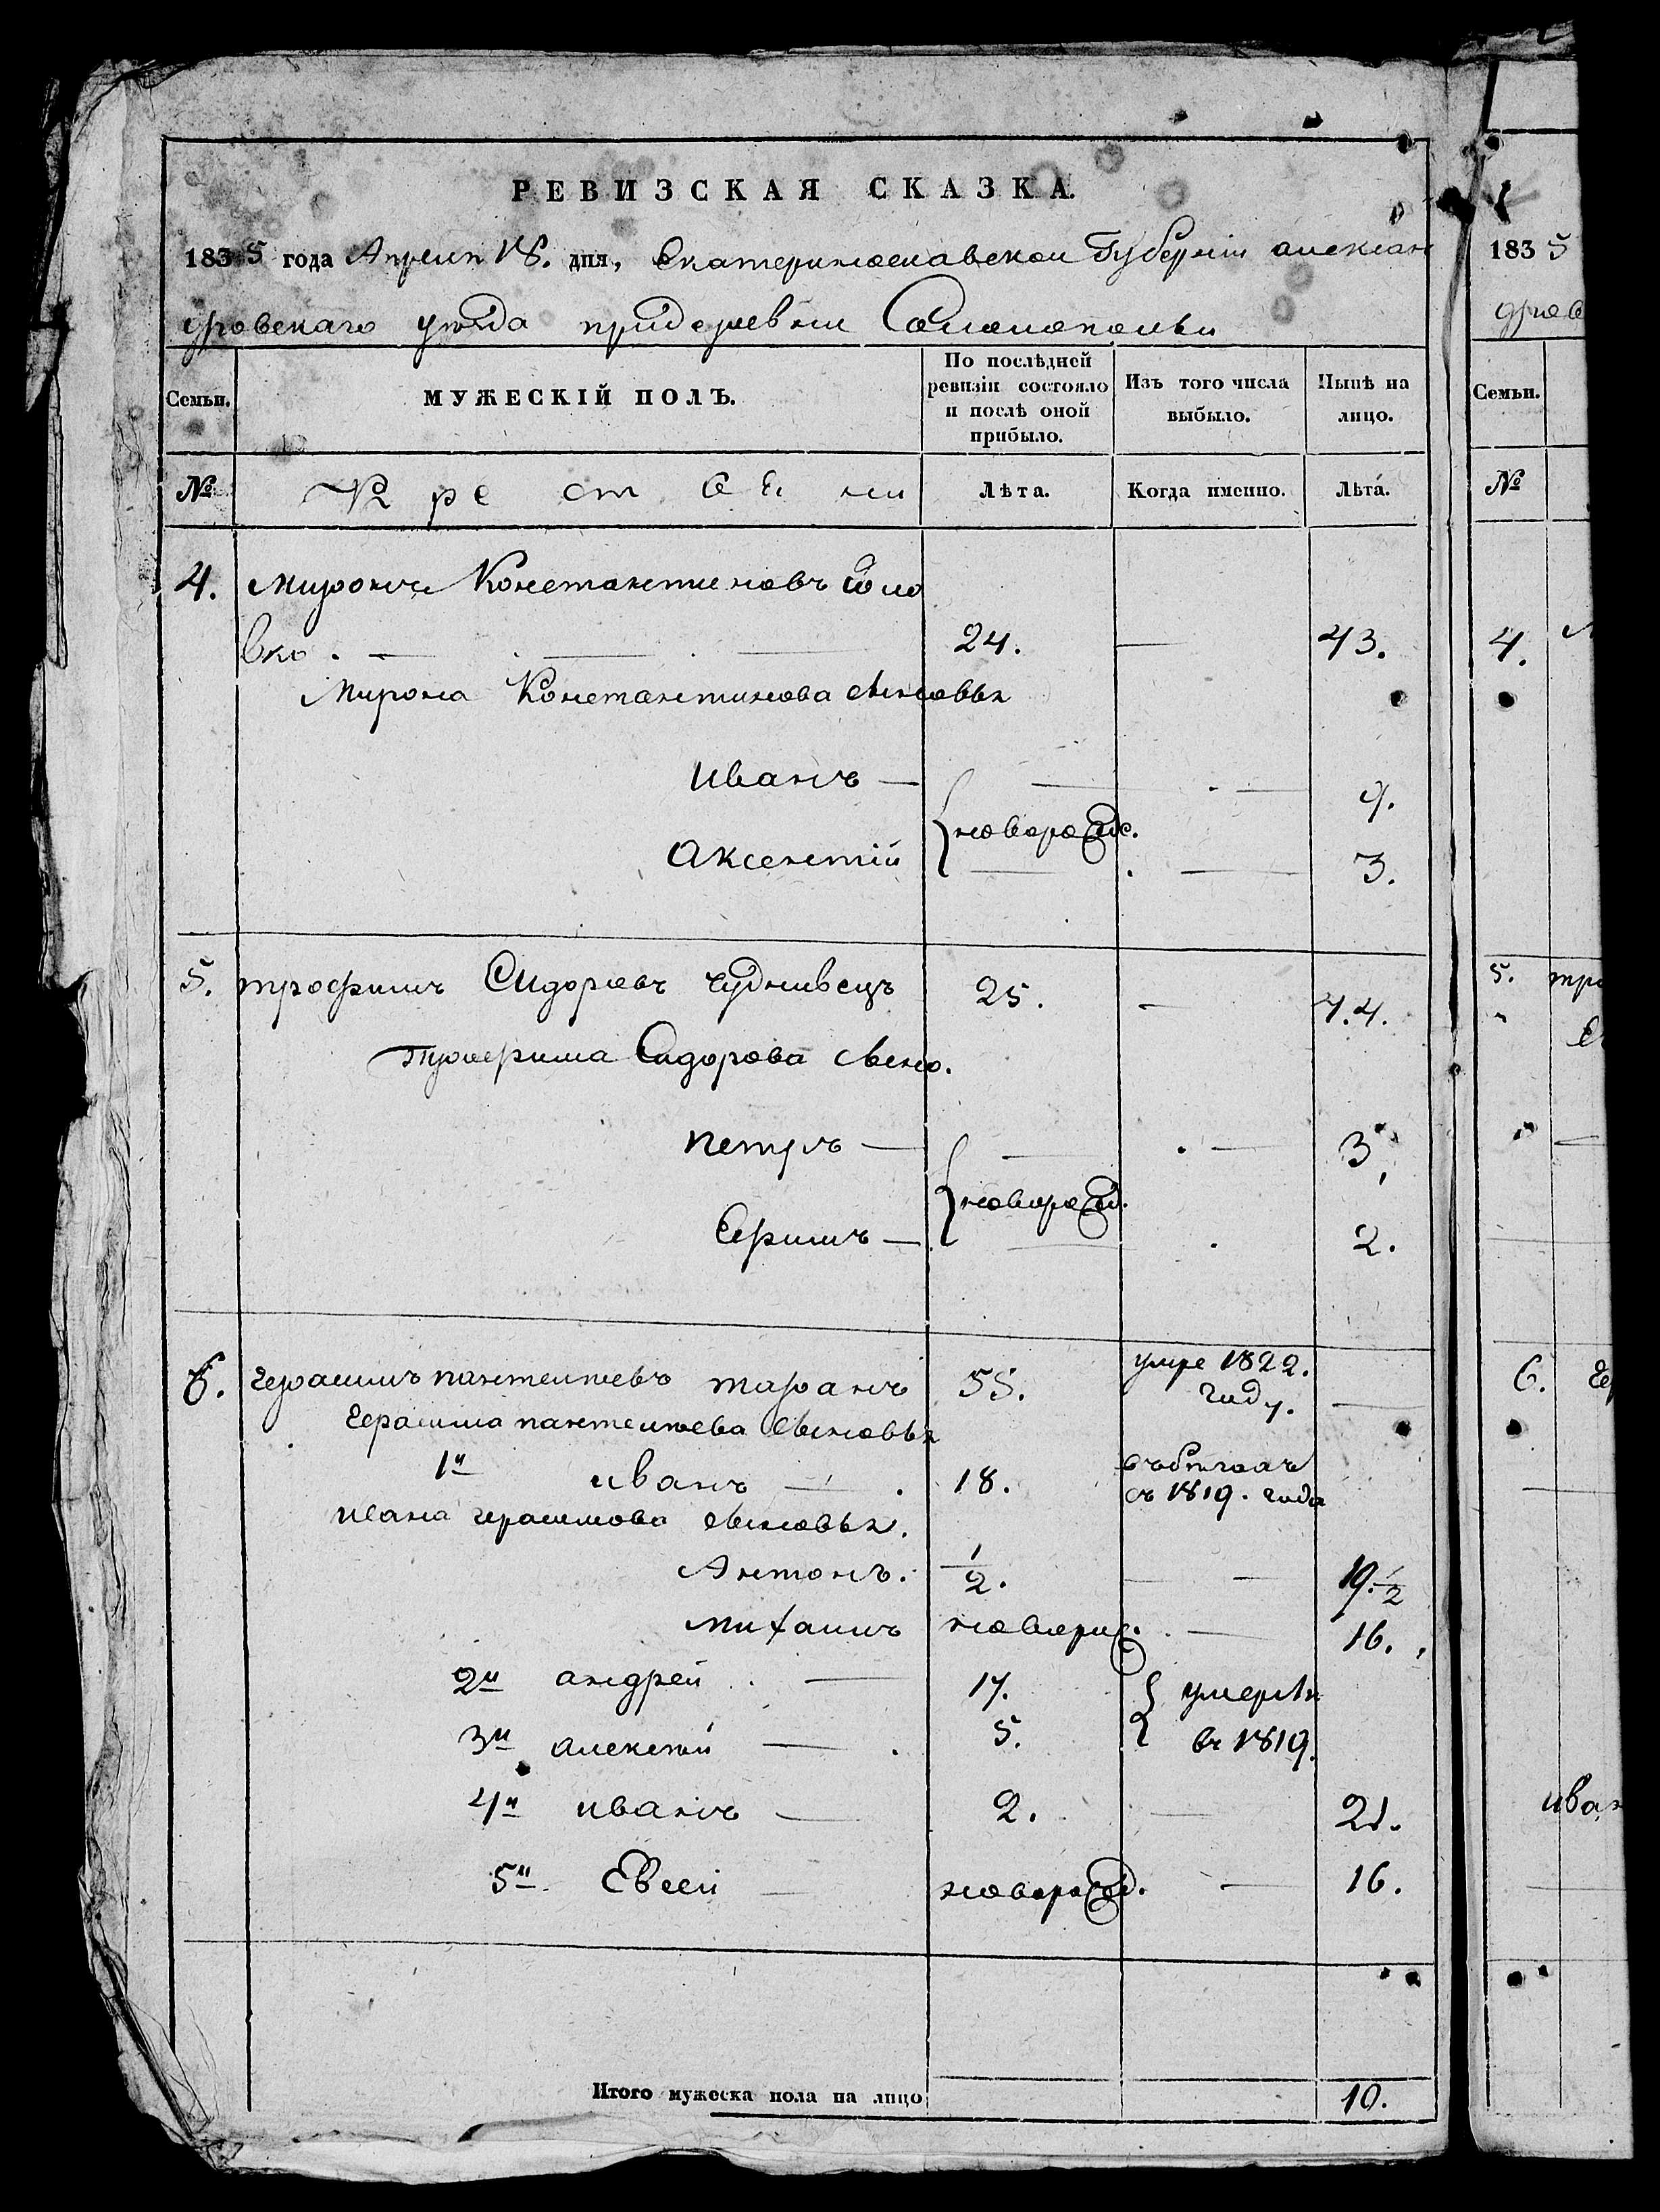 РЕВИЗСКАЯ СКАЗКА.
1835 года Апреля 18. дня, Екатеринославской Губерніи александ
ровскаго уезда придеревни
Семьи.
МУЖЕСКІЙ ПОЛЪ.
По послѣдней ревизіи состояло и послѣ оной прибыло.
Изъ того числа выбыло.
Нынѣ на лицо.
№
Крестьяни
Лѣта.
Когда именно.
Лѣта.
4. Миронъ Константиновъ
вко. — 24. — 43.
Мирона Константинова сыновья
Иванъ — — — 9.
новорожд.
Аксентій — — 3.
5. трофимъ Сидоровъ чуднивецъ 25. — 44.
Трофима Сидорова сыно.
петръ — — — 3,
новорожд.
Ефимъ — — 2.
6. Герасимъ пантелеевъ таранъ 55. умре 1822. году. —
Герасима пантелеева сыновья
1й иванъ — 18. въбегахъ съ 1819. года
ивана герасимова сыновья.
Антонъ. 1/2. — — 19. 1/2
михаилъ новорож. — 16.
2й андрей — 17. умерли
3й алексей — 5. въ 1819.
4й иванъ — 2. — 21.
5й Евсей — новорожд. — 16.
Итого мужеска пола на лицо 10.
1835
дров
Семьи.
№
4.
5. тро
6. гер
иван